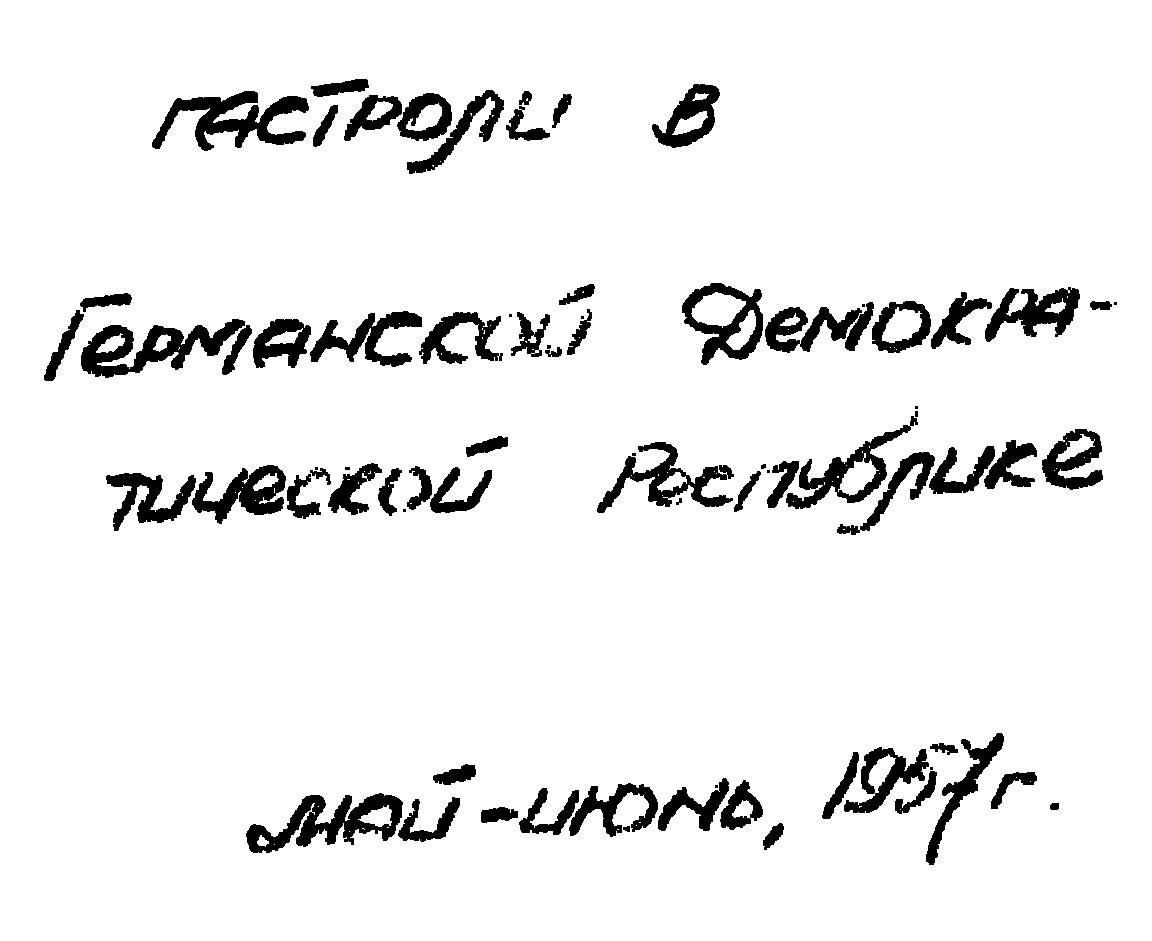 гастроли в
Германской Демокра-
тической Республике
май-июнь, 1957г.